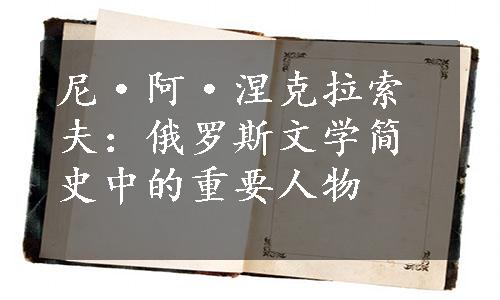 尼·阿·涅克拉索
夫：俄罗斯文学简
史中的重要人物